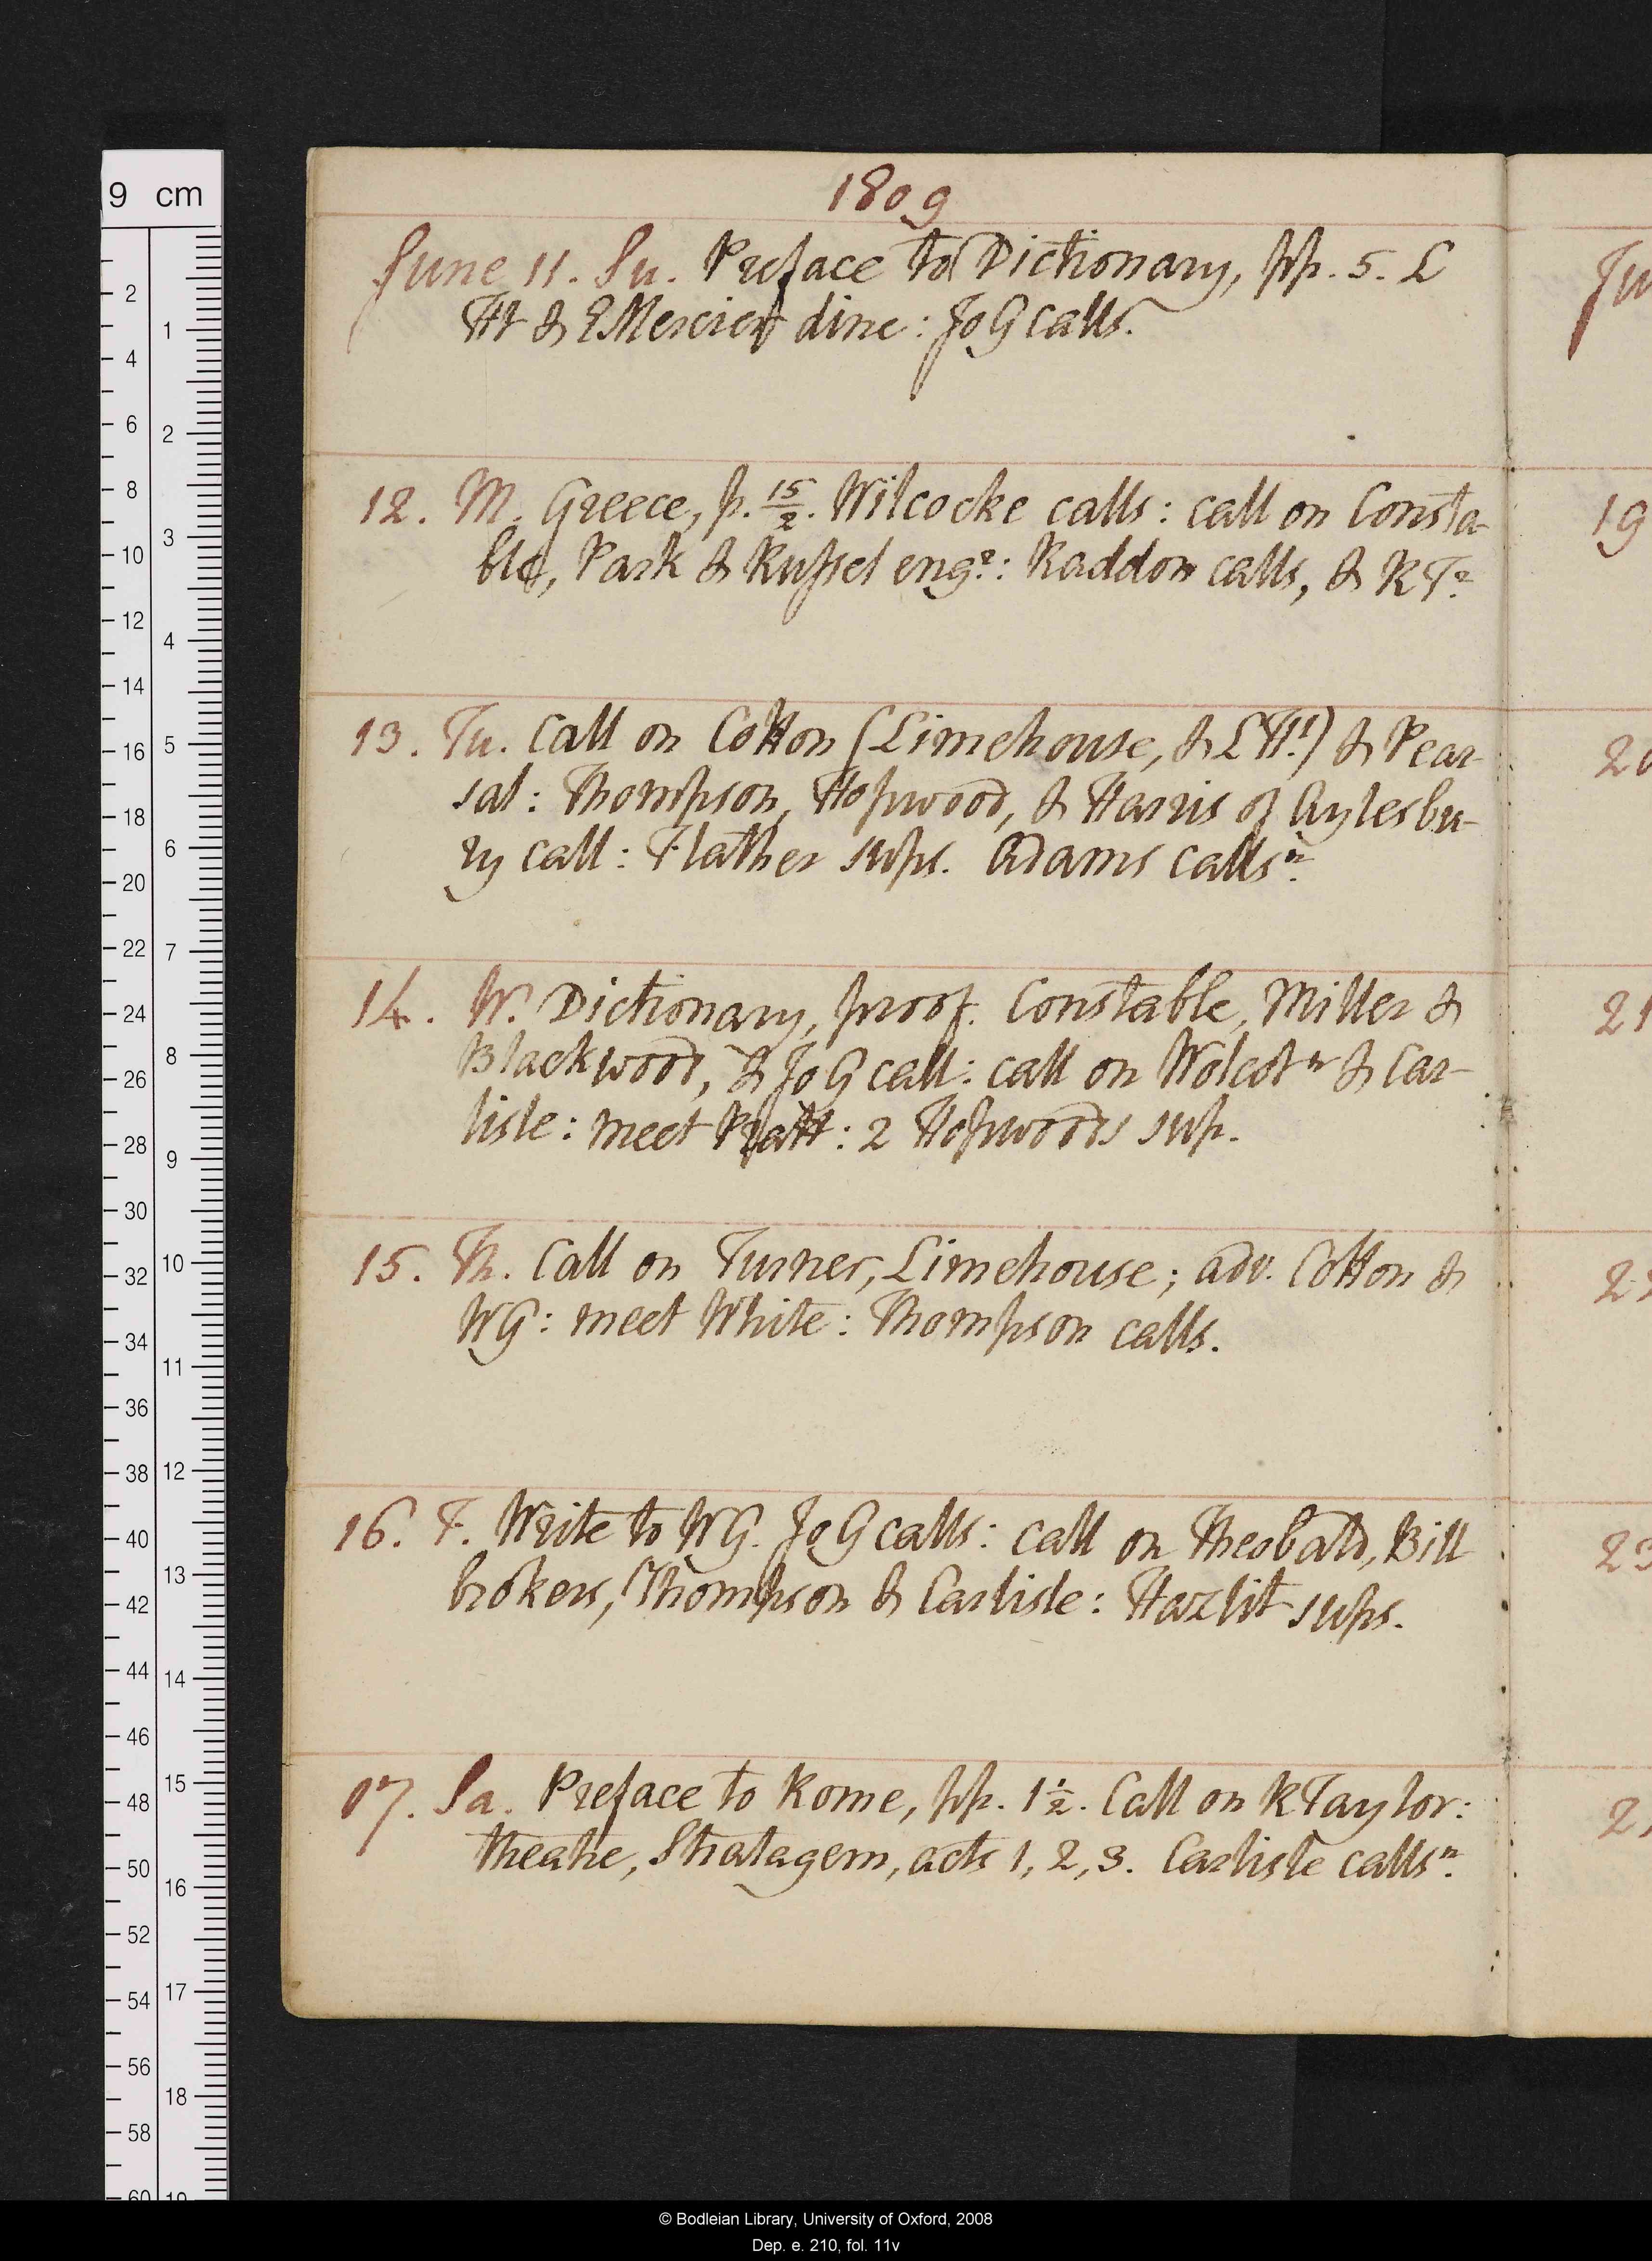 1809
June 11. Su. Preface to Dictionary, pp. 5. L
Ht & E Mercier dine: Jo G calls.
12. M. Greece, p. 15/2. Wilcocke calls: call on Consta-
ble, Park & Russel engr: Raddon calls, & R Tr
13. Tu. Call on Cotton (Limehouse, & L Ht) & Pear-
sal: Thompson, Hopwood, & Harris of Aylesbu-
ry call: Flather sups. Adams calls n.
14. W. Dictionary, proof. Constable, Miller &
Blackwood, & Jo G call: call on Wolcot n & Car-
lisle: meet Pratt: 2 Hopwoods sup.
15. Th. Call on Turner, Limehouse; adv. Cotton &
WG: meet White: Thompson calls.
16. F. Write to WG. Jo G calls: call on Theobald, Bill
brokers, Thompson & Carlisle: Hazlit sups.
17. Sa. Preface to Rome, pp. 1 1/2. Call on R Taylor:
theatre, Stratagem, acts 1, 2, 3. Carlisle calls n.
Ju
19
20
21
23
9 cm
2
4
6
8
10
12
14
16
18
20
22
24
26
28
30
32
34
36
38
40
42
44
46
48
50
52
54
56
58
60
1
2
3
4
5
6
7
8
9
10
11
12
13
14
15
16
17
18
© Bodleian Library, University of Oxford, 2008
Dep. e. 210, fol. 11v